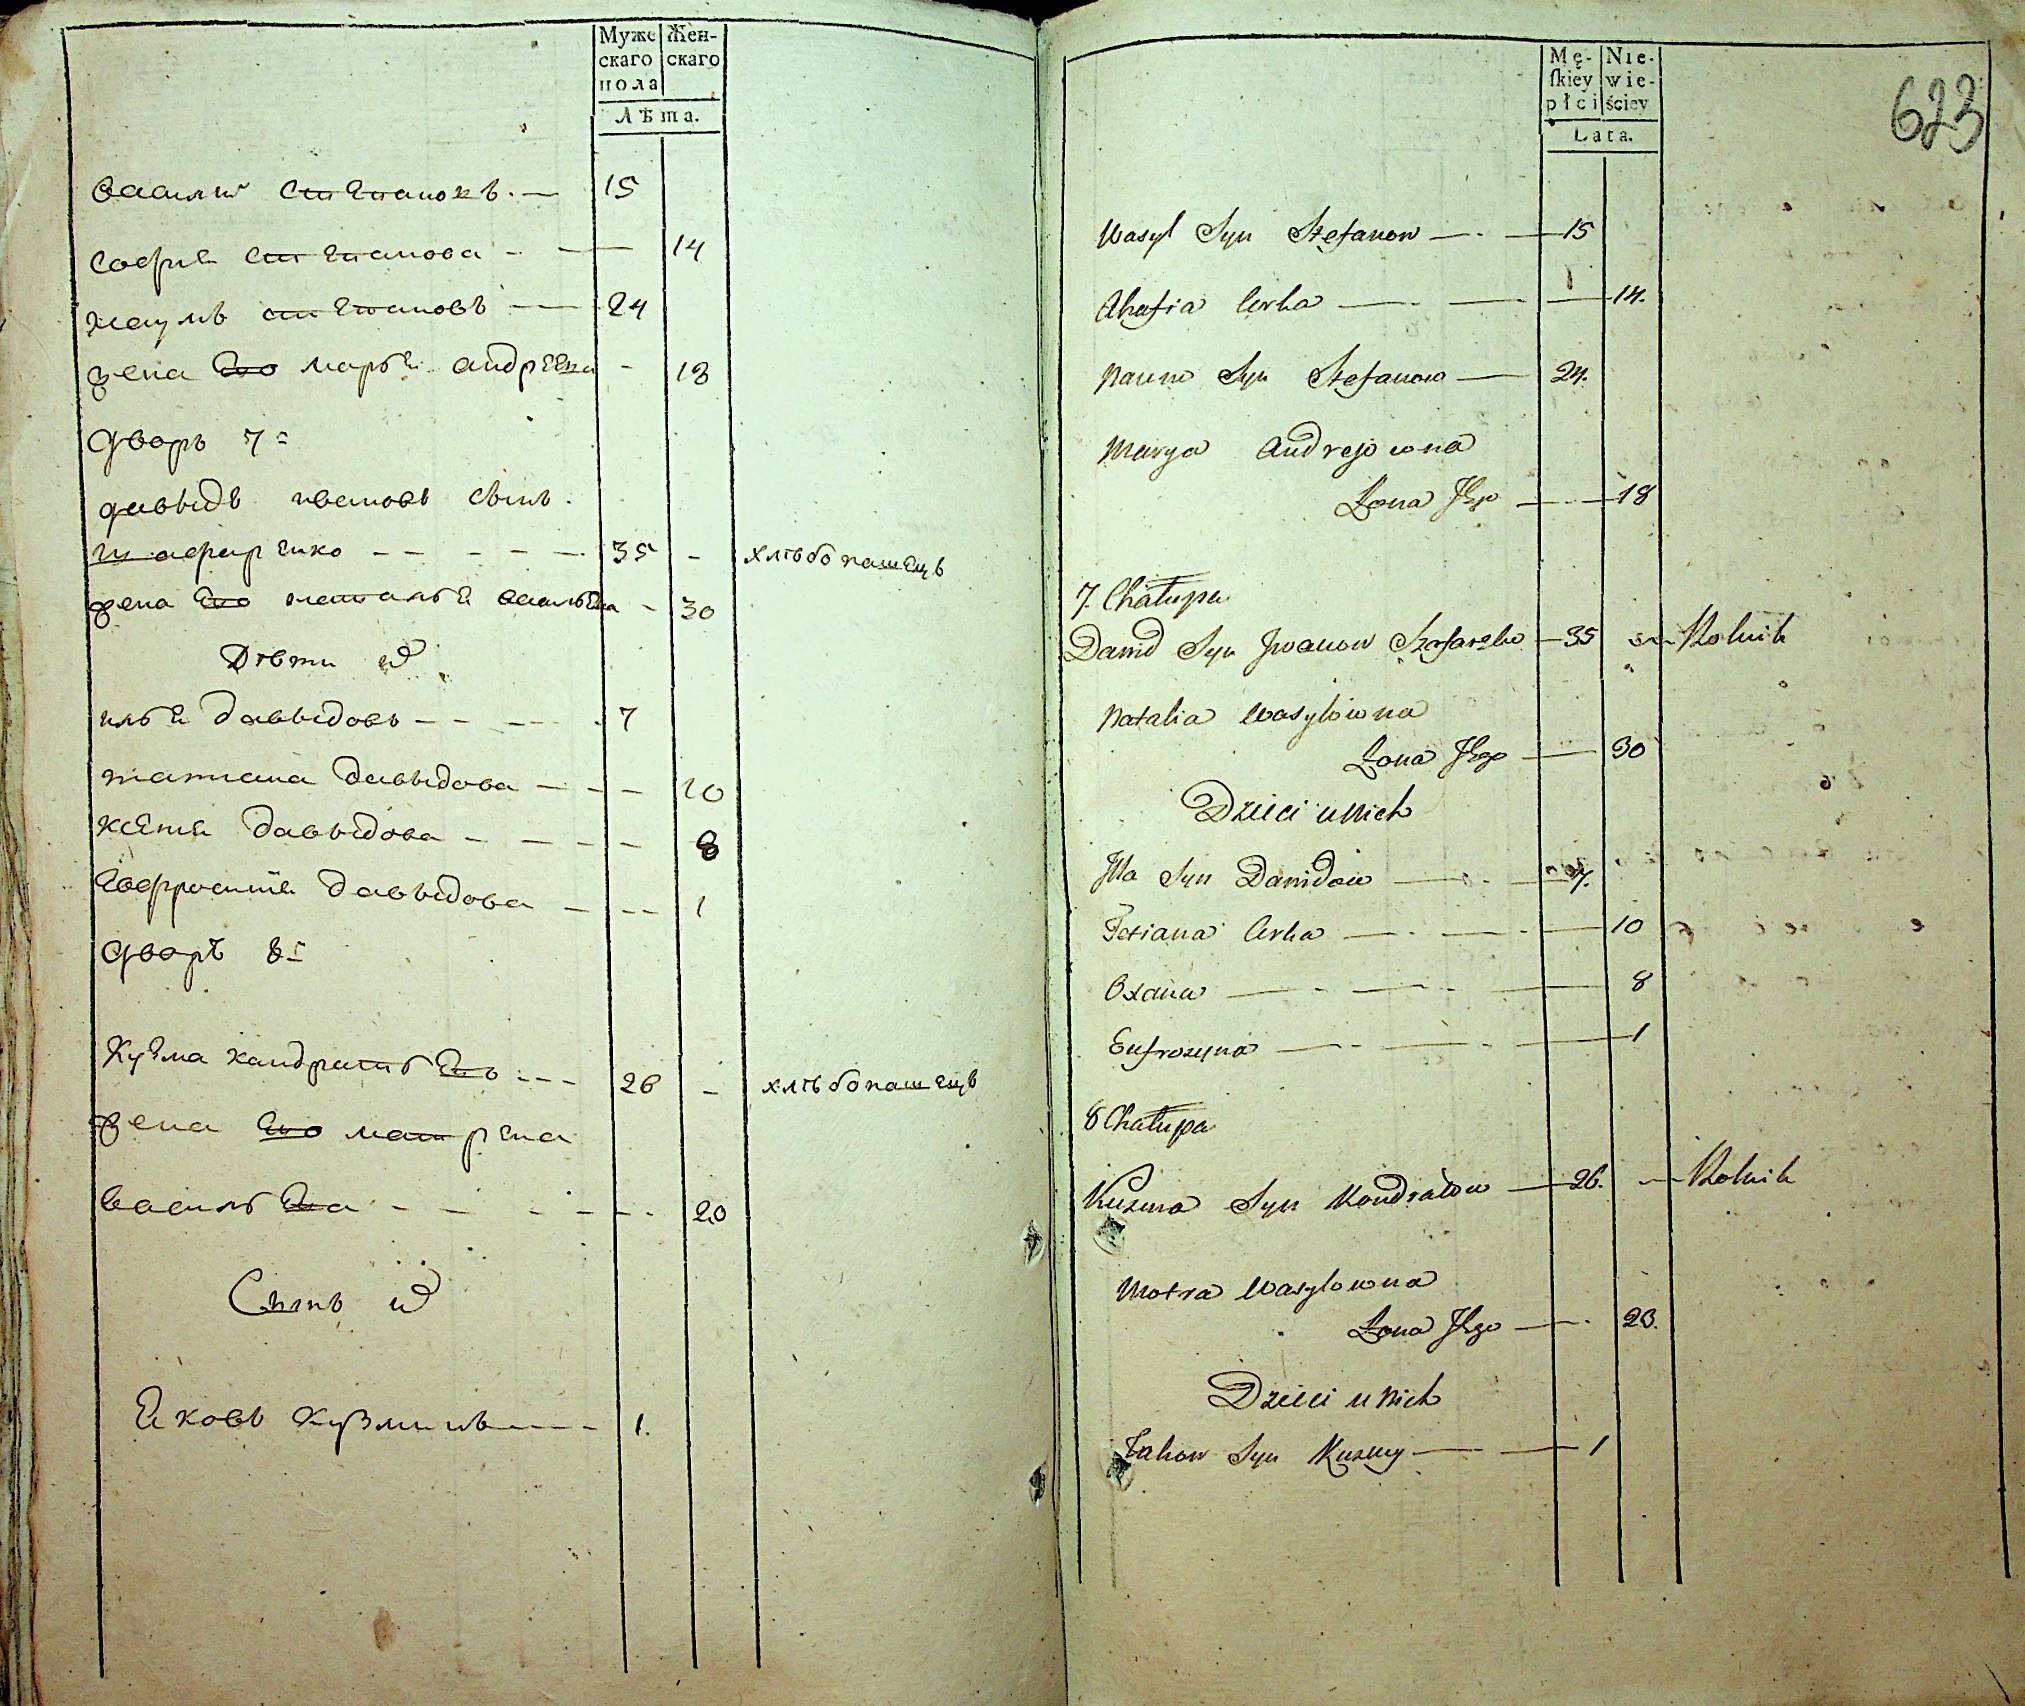 Муже
скаго
пола
Жен-
скаго
Лѣта.
василій степановъ. — 15
софиа степанова - — 14
наумъ степановъ — 24
жена его марья андреева - 18
дворъ 7й
давыдъ ивановъ сынъ.
шафаренко - - - - - 35 - хлѣбопашецъ
жена его наталья васильева - 30
Дѣти их
илья давыдовъ - - - - - 7
татиана давыдова - - - 10
ксеня давыдова - - - - 8
евфросинія давыдова - - - 1
дворъ 8й
Кузма кандратьевъ - - - 26 - хлѣбопашецъ
жена его матрена
васильева - - - - - - 20
Сынъ их
яковъ кузминъ - - - - 1.
Mę-
skiey
płci
Nie-
wie-
ściey
Lata.
623
Wasyl Syn Stefanow — . — 15
Ahafia Corka — . — — 14.
Naum Syn Stefanow — 24.
Marya Andrejowna
Żona Jego — 18
7. Chałupa
Dawid Syn Jwanow Szafarenko — 35 — Rolnik
Natalia Wasylowna
Żona Jego — 30
Dzieci u Nich
Jlla Syn Dawidow — . — 7.
Tetiana Corka — . — . — 10
Oxana — . — . — 8
Eufrozyna — . — . — 1
8 Chałupa
Kuzma Syn Kondratow — 26. — Rolnik
Motra Wasylowna
Żona Jego — . 20.
Dzieci u Nich
Jakow Syn Kuzmy — — 1